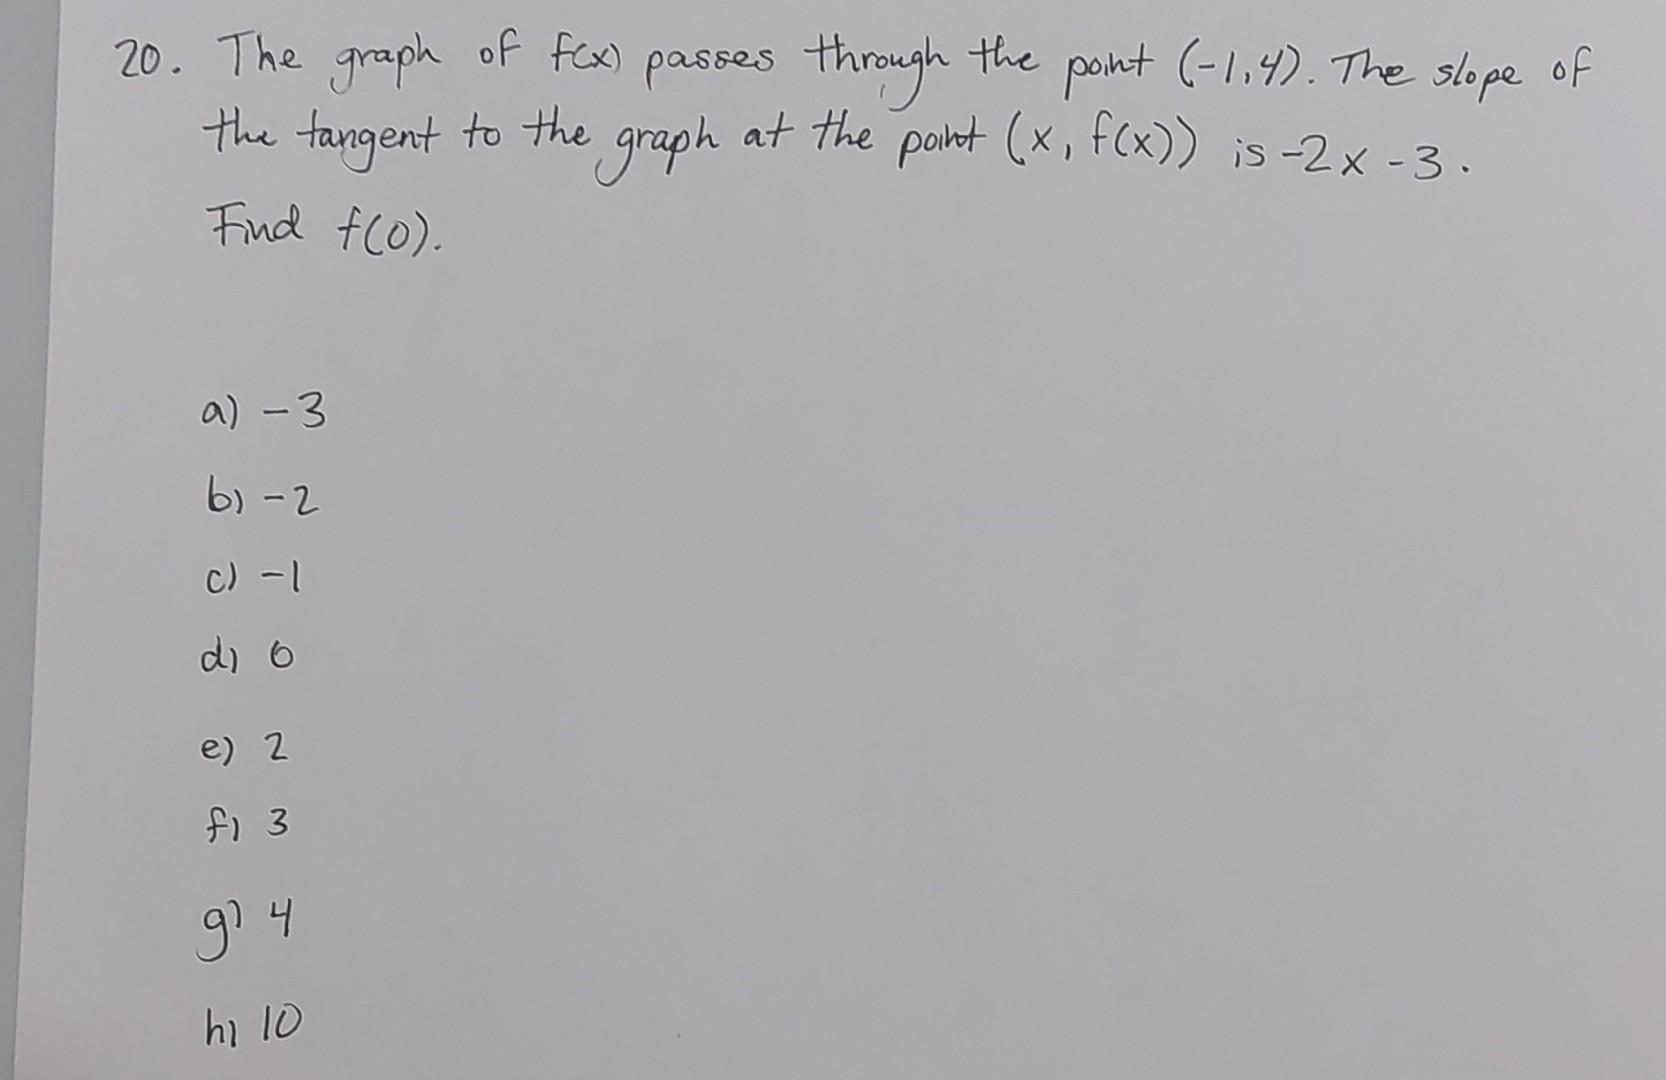 20. The graph of f(x) passes through the point (-1,4). The slope of
the tangent to the graph at the point (x, f(x)) is -2x -3.
Find f(0).
a) -3
b) -2
c) -1
d) 0
e) 2
f) 3
g) 4
h) 10